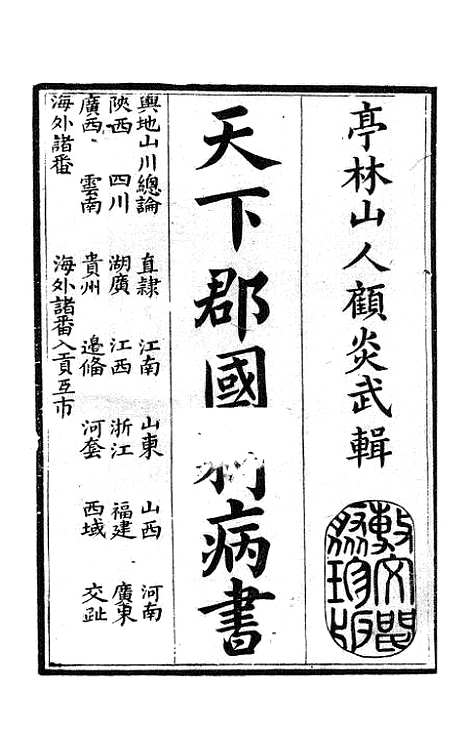 亭林山人顧炎武輯
敷文閣聚珍版
天下郡國利病書
輿地山川總論 直隸 江南 山東 山西 河南
陝西 四川 湖廣 江西 浙江 福建 廣東
廣西 雲南 貴州 邊備 河套 西域 交趾
海外諸番 海外諸番入貢互市